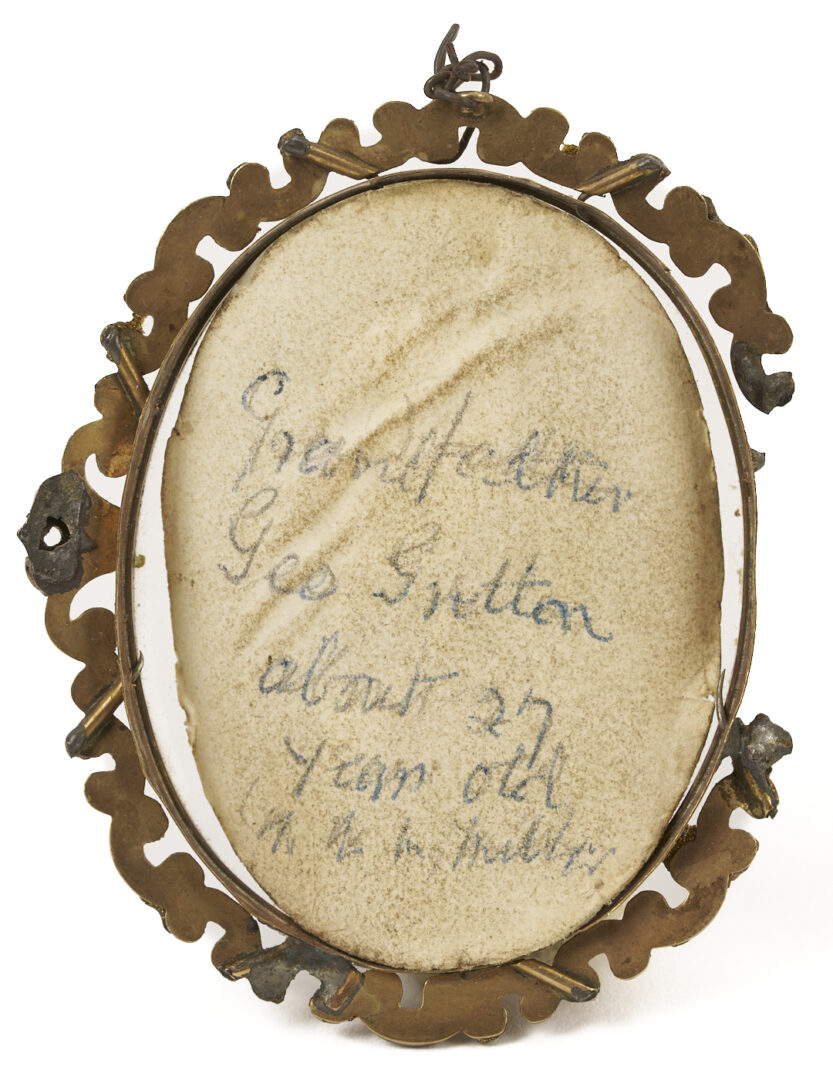 Grandfather
Geo Gretton
about 27
year old
in